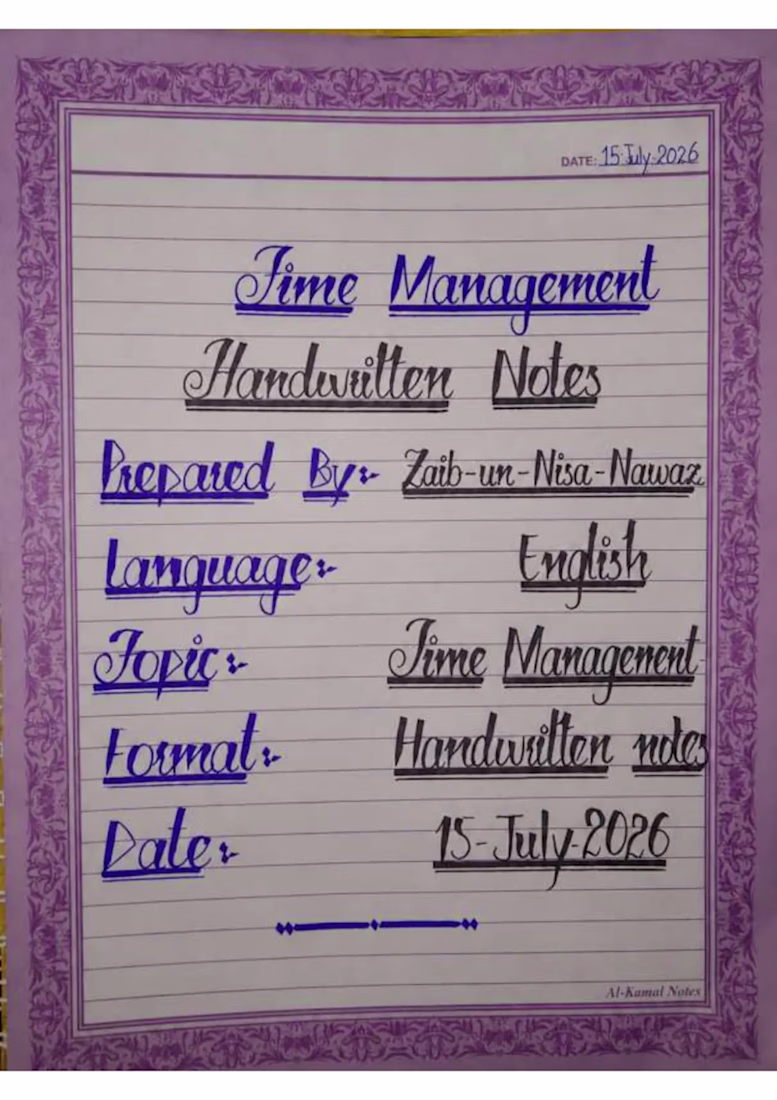 DATE: 15-July-2026
Time Management
Handwritten Notes
Prepared By:- Zaib-un-Nisa-Nawaz
Language:- English
Topic:- Time Management
Format:- Handwritten notes
Date:- 15-July-2026
Al-Kamal Notes